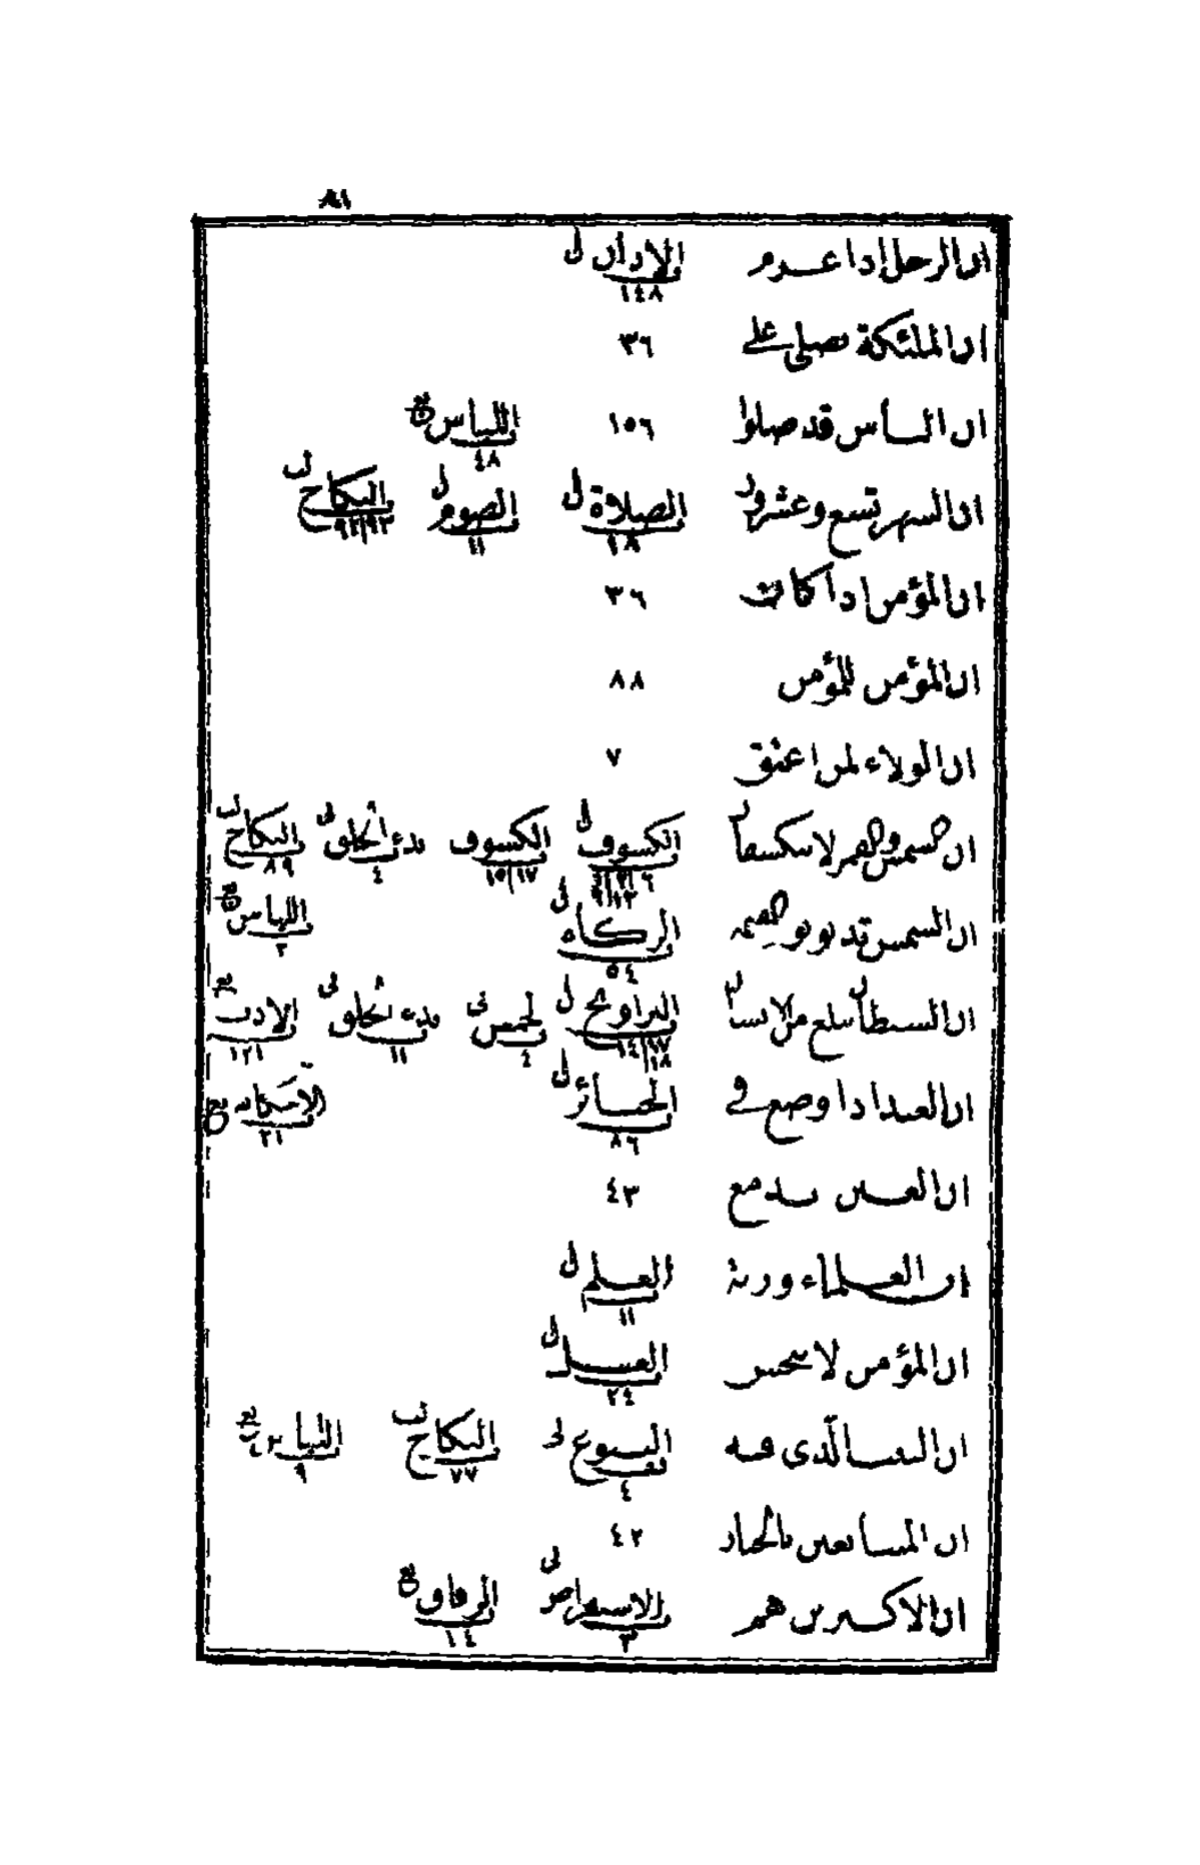 ان الرجل اذا غرم الاذان ١٤٨
ان الملئكة تصلى على ٣٦
ان الناس قد صلوا ١٥٦ اللباس ٤٨
ان الشهر تسع وعشرون الصلاة ١٨ الصوم ١١ النكاح ٩٢|٩٣
ان المؤمن اذا كانت ٣٦
ان المؤمن للمؤمن ٨٨
ان الولاء لمن اعتق ٧
ان الشمس والقمر لا ينكسفان الكسوف الكسوف ١٥|١٧ بدء الخلق ٤ النكاح ٨٩
ان الشمس تدنو يوم القيمة الزكاة ٥٤ اللباس ٢
ان الشيطان يبلغ من الانسان التراويح ١٤|١٧ ١٨ الخمس ٤ بدء الخلق ١١ الادب ١٢١
ان العبد اذا وضع فى الجنائز ٨٦
ان العين تدمع ٤٣
ان العلماء ورثة العلم ١١
ان المؤمن لا ينجس الغسل ٢٤
ان البيت الذى فيه البيوع ٤ النكاح ٧٧ اللباس ٩
ان المتبايعين بالخيار ٤٢
ان الاكثرين هم الاستقراض ٣ الرقاق ١٤